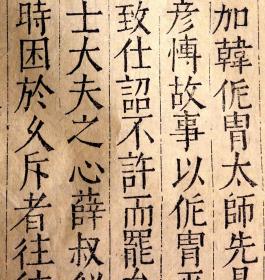 加韓侂冑太師先是
彦慱故事以侂冑平
致仕詔不許而罷
士大夫之心薛叔
時困於久斥者往往